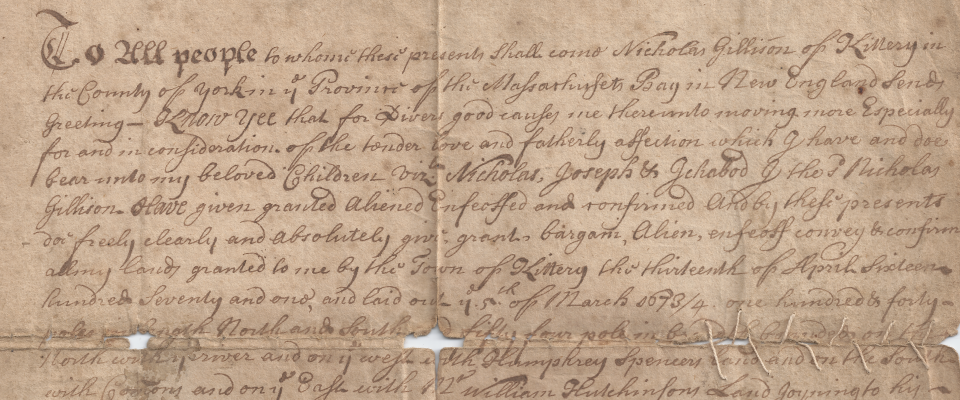 To All people to whome these presents Shall come Nicholas Gillison of Kittery in
the County of York in ye Province of the Massachusets Bay in New England Sends
Greeting— Know Yee that for Divers good causes me thereunto moving more Especially
for and in consideration of the tender love and fatherly affection which I have and doe
bear unto my beloved Children viz Nicholas, Joseph & Ichabod I the sd Nicholas
Gillison Have given granted Aliened Enfeoffed and confirmed And by these presents
doe freely clearly and absolutely give grant bargain, Alien, enfeoff convey & confirm
all my lands granted to me by the Town of Kittery the thirteenth of April Sixteen
hundred Seventy and one, and laid out ye 5th of March 1673/4 one hundred & forty
poles in length North and South fifty four pole in on the
North with ye river and on ye west with Humphrey Spencers Land and on the South
with Comons and on ye East with Mr William Hutchinsons Land Joyning to his